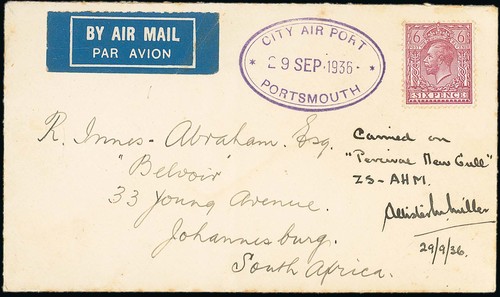 BY AIR MAIL
PAR AVION
CITY AIR PORT
* 29 SEP·1936· *
PORTSMOUTH
6 6
SIX PENCE
R. Innes-Abraham. Esq.
"Belvoir"
33 Young Avenue.
Johannesburg.
South Africa.
Carried on
"Percival Mew Gull"
ZS-AHM.
Allister Miller
29/9/36.